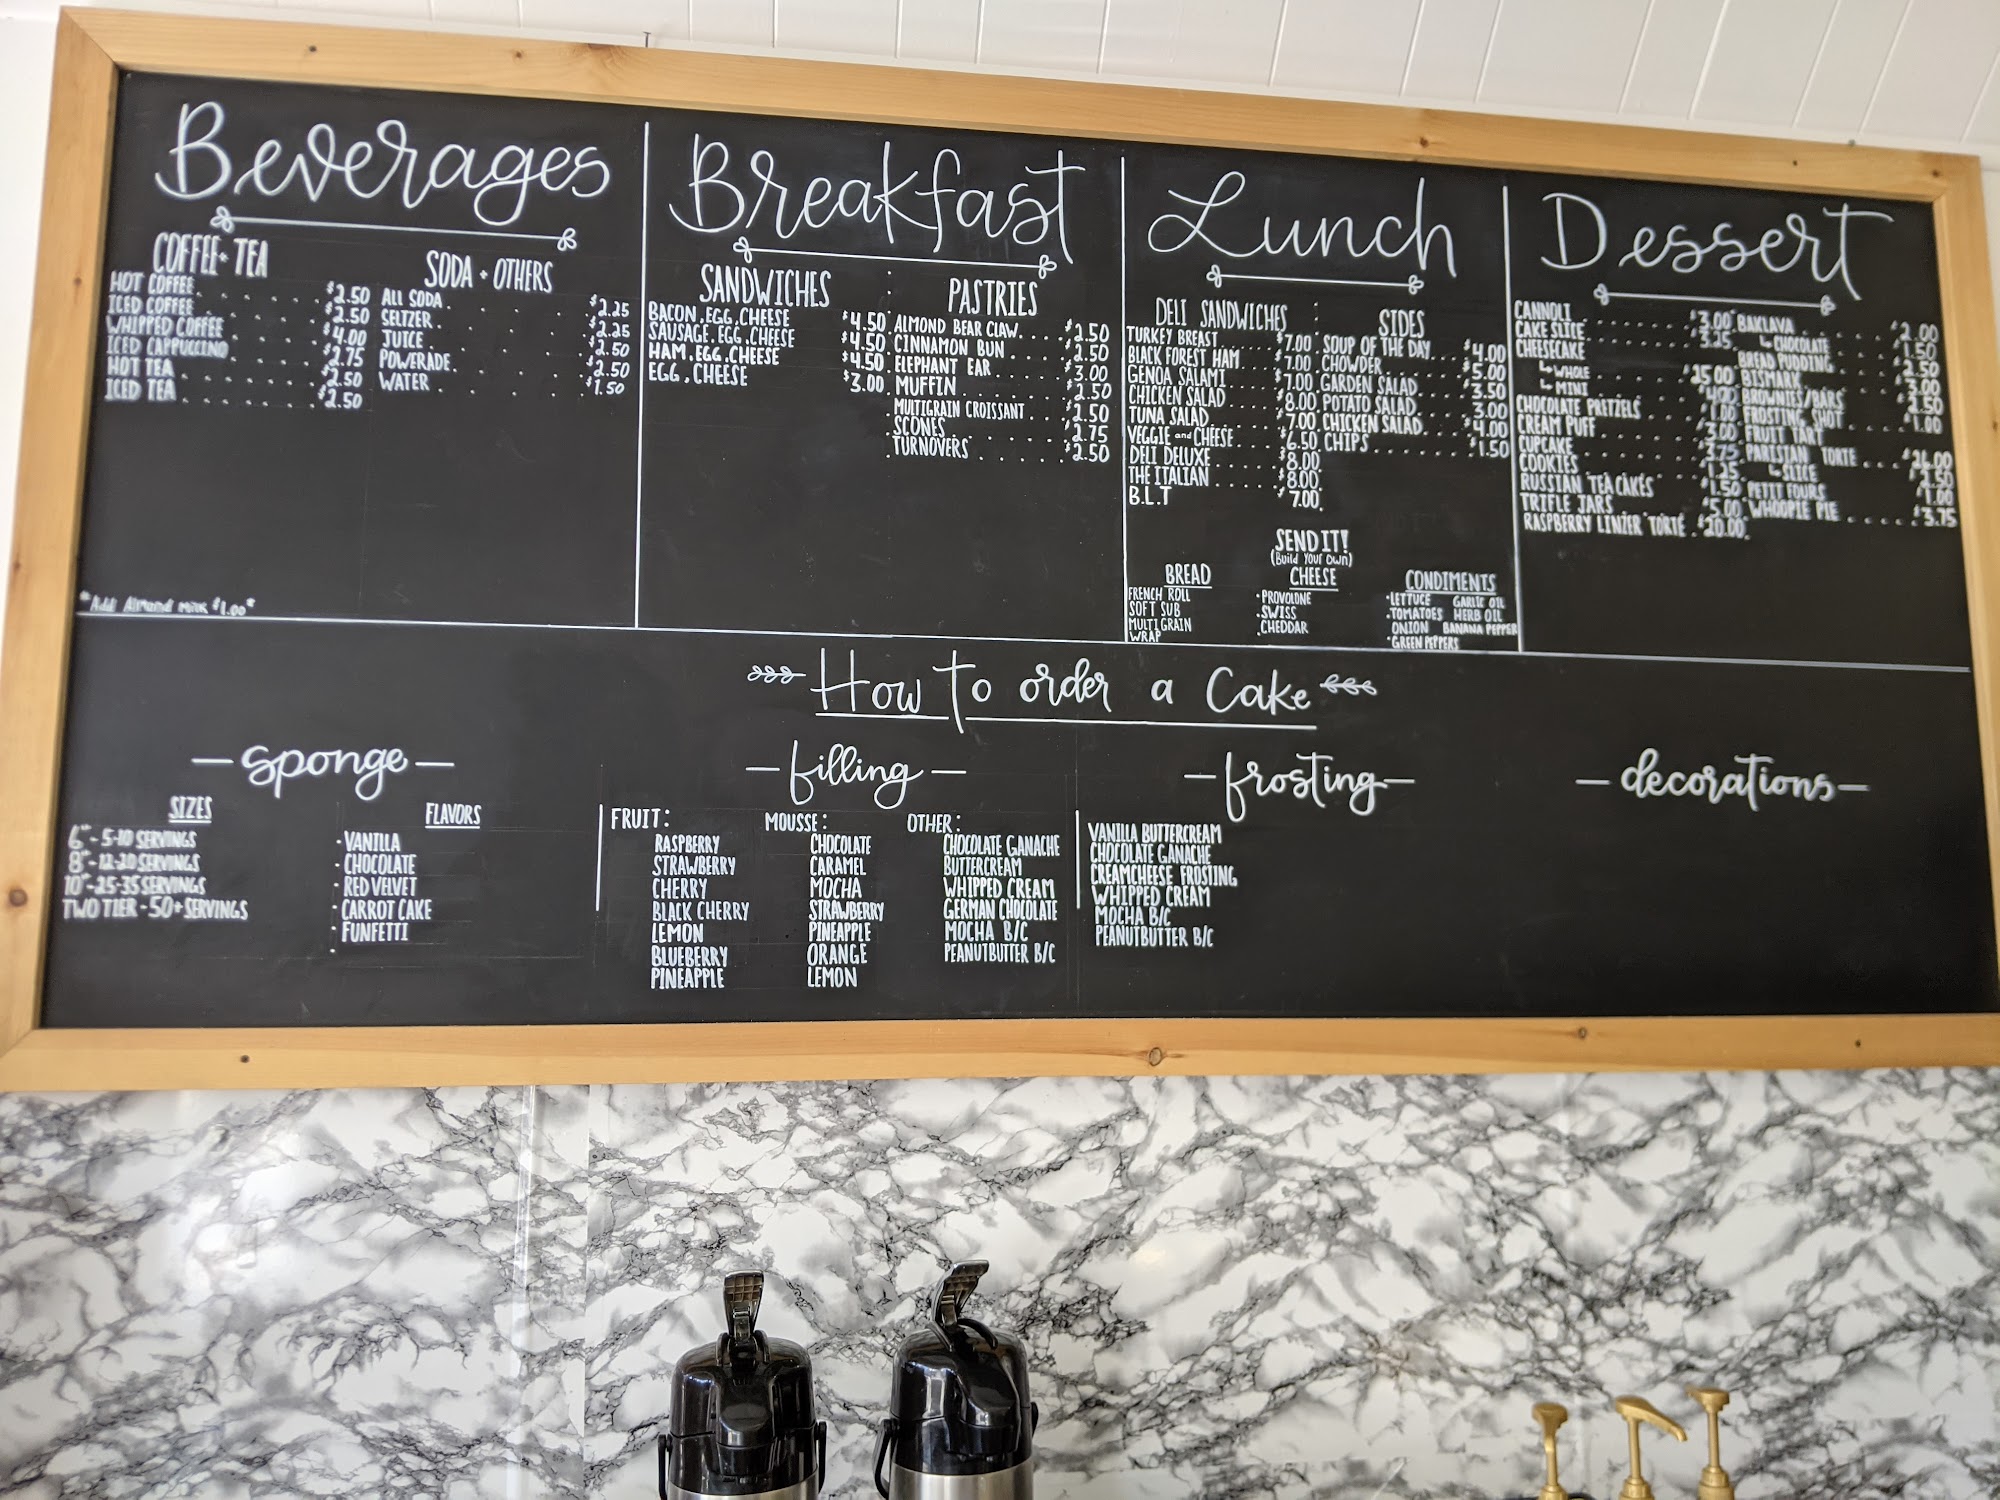 Beverages
COFFEE + TEA
HOT COFFEE $2.50
ICED COFFEE $2.50
WHIPPED COFFEE $4.00
ICED CAPPUCCINO $2.75
HOT TEA $2.50
ICED TEA $2.50
SODA + OTHERS
ALL SODA $2.25
SELTZER $2.25
JUICE $2.50
POWERADE $2.50
WATER $1.50
*Add Almond Milk $1.00*
Breakfast
SANDWICHES
BACON.EGG.CHEESE $4.50
SAUSAGE.EGG.CHEESE $4.50
HAM.EGG.CHEESE $4.50
EGG.CHEESE $3.00
PASTRIES
ALMOND BEAR CLAW $2.50
CINNAMON BUN $2.50
ELEPHANT EAR $3.00
MUFFIN $2.50
MULTIGRAIN CROISSANT $2.50
SCONES $2.75
TURNOVERS $2.50
Lunch
DELI SANDWICHES
TURKEY BREAST $7.00
BLACK FOREST HAM $7.00
GENOA SALAMI $7.00
CHICKEN SALAD $8.00
TUNA SALAD $7.00
VEGGIE and CHEESE $6.50
DELI DELUXE $8.00
THE ITALIAN $8.00
B.L.T $7.00
SIDES
SOUP OF THE DAY $4.00
CHOWDER $5.00
GARDEN SALAD $3.50
POTATO SALAD $3.00
CHICKEN SALAD $4.00
CHIPS $1.50
SEND IT!
(Build Your Own)
BREAD
FRENCH ROLL
SOFT SUB
MULTIGRAIN
WRAP
CHEESE
PROVOLONE
SWISS
CHEDDAR
CONDIMENTS
LETTUCE GARLIC OIL
TOMATOES HERB OIL
ONION BANANA PEPPER
GREEN PEPPERS
Dessert
CANNOLI $3.00
CAKE SLICE $3.25
CHEESECAKE
WHOLE $25.00
MINI
CHOCOLATE PRETZELS $1.00
CREAM PUFF $3.00
CUPCAKE $3.75
COOKIES $1.25
RUSSIAN TEA CAKES $1.50
TRIFLE JARS $5.00
RASPBERRY LINZER TORTE $20.00
BAKLAVA $2.00
CHOCOLATE $1.50
BREAD PUDDING $2.50
BISMARK $3.00
BROWNIES/BARS $2.50
FROSTING SHOT $1.00
FRUIT TART
PARISIAN TORTE $26.00
SLICE $3.50
PETIT FOURS $1.00
WHOOPIE PIE $3.75
How to order a Cake
sponge
SIZES
6" - 5-10 SERVINGS
8" - 12-20 SERVINGS
10" - 25-35 SERVINGS
TWO TIER - 50+ SERVINGS
FLAVORS
VANILLA
CHOCOLATE
RED VELVET
CARROT CAKE
FUNFETTI
filling
FRUIT:
RASPBERRY
STRAWBERRY
CHERRY
BLACK CHERRY
LEMON
BLUEBERRY
PINEAPPLE
MOUSSE:
CHOCOLATE
CARAMEL
MOCHA
STRAWBERRY
PINEAPPLE
ORANGE
LEMON
OTHER:
CHOCOLATE GANACHE
BUTTERCREAM
WHIPPED CREAM
GERMAN CHOCOLATE
MOCHA B/C
PEANUTBUTTER B/C
frosting
VANILLA BUTTERCREAM
CHOCOLATE GANACHE
CREAMCHEESE FROSTING
WHIPPED CREAM
MOCHA B/C
PEANUTBUTTER B/C
decorations